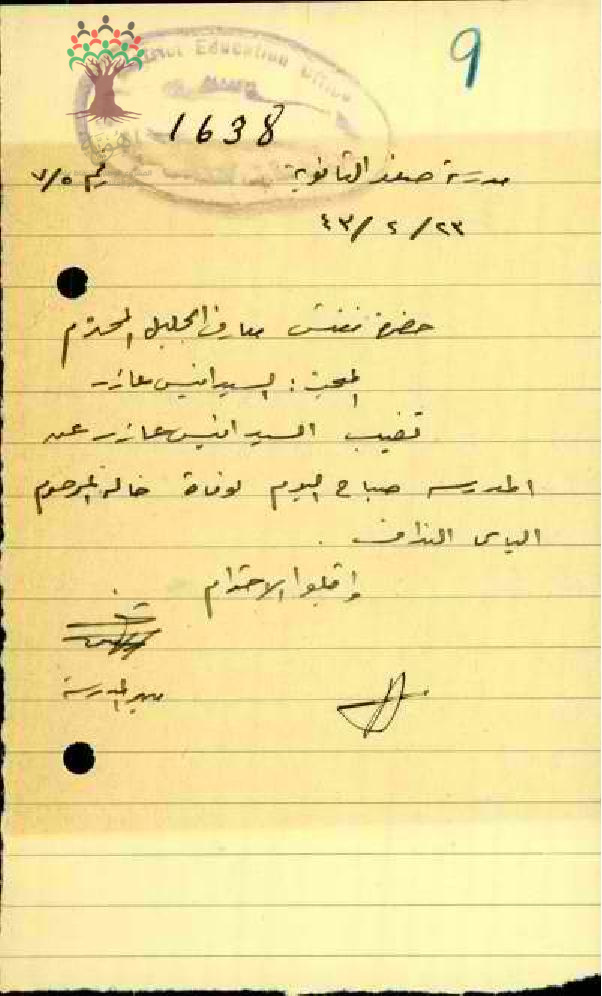 9
District Education Office
1638
مدرسة صفد الثانوية
٧/٥
٢٣/٢/٤٣
حضرة مفتش معارف الجليل المحترم
المبحث : السيد انيس عازر
تغيب السيد انيس عازر عن
المدرسه صباح اليوم لوفاة خاله المرحوم
الياس النداف .
واقبلوا الاحترام
مدير المدرسة